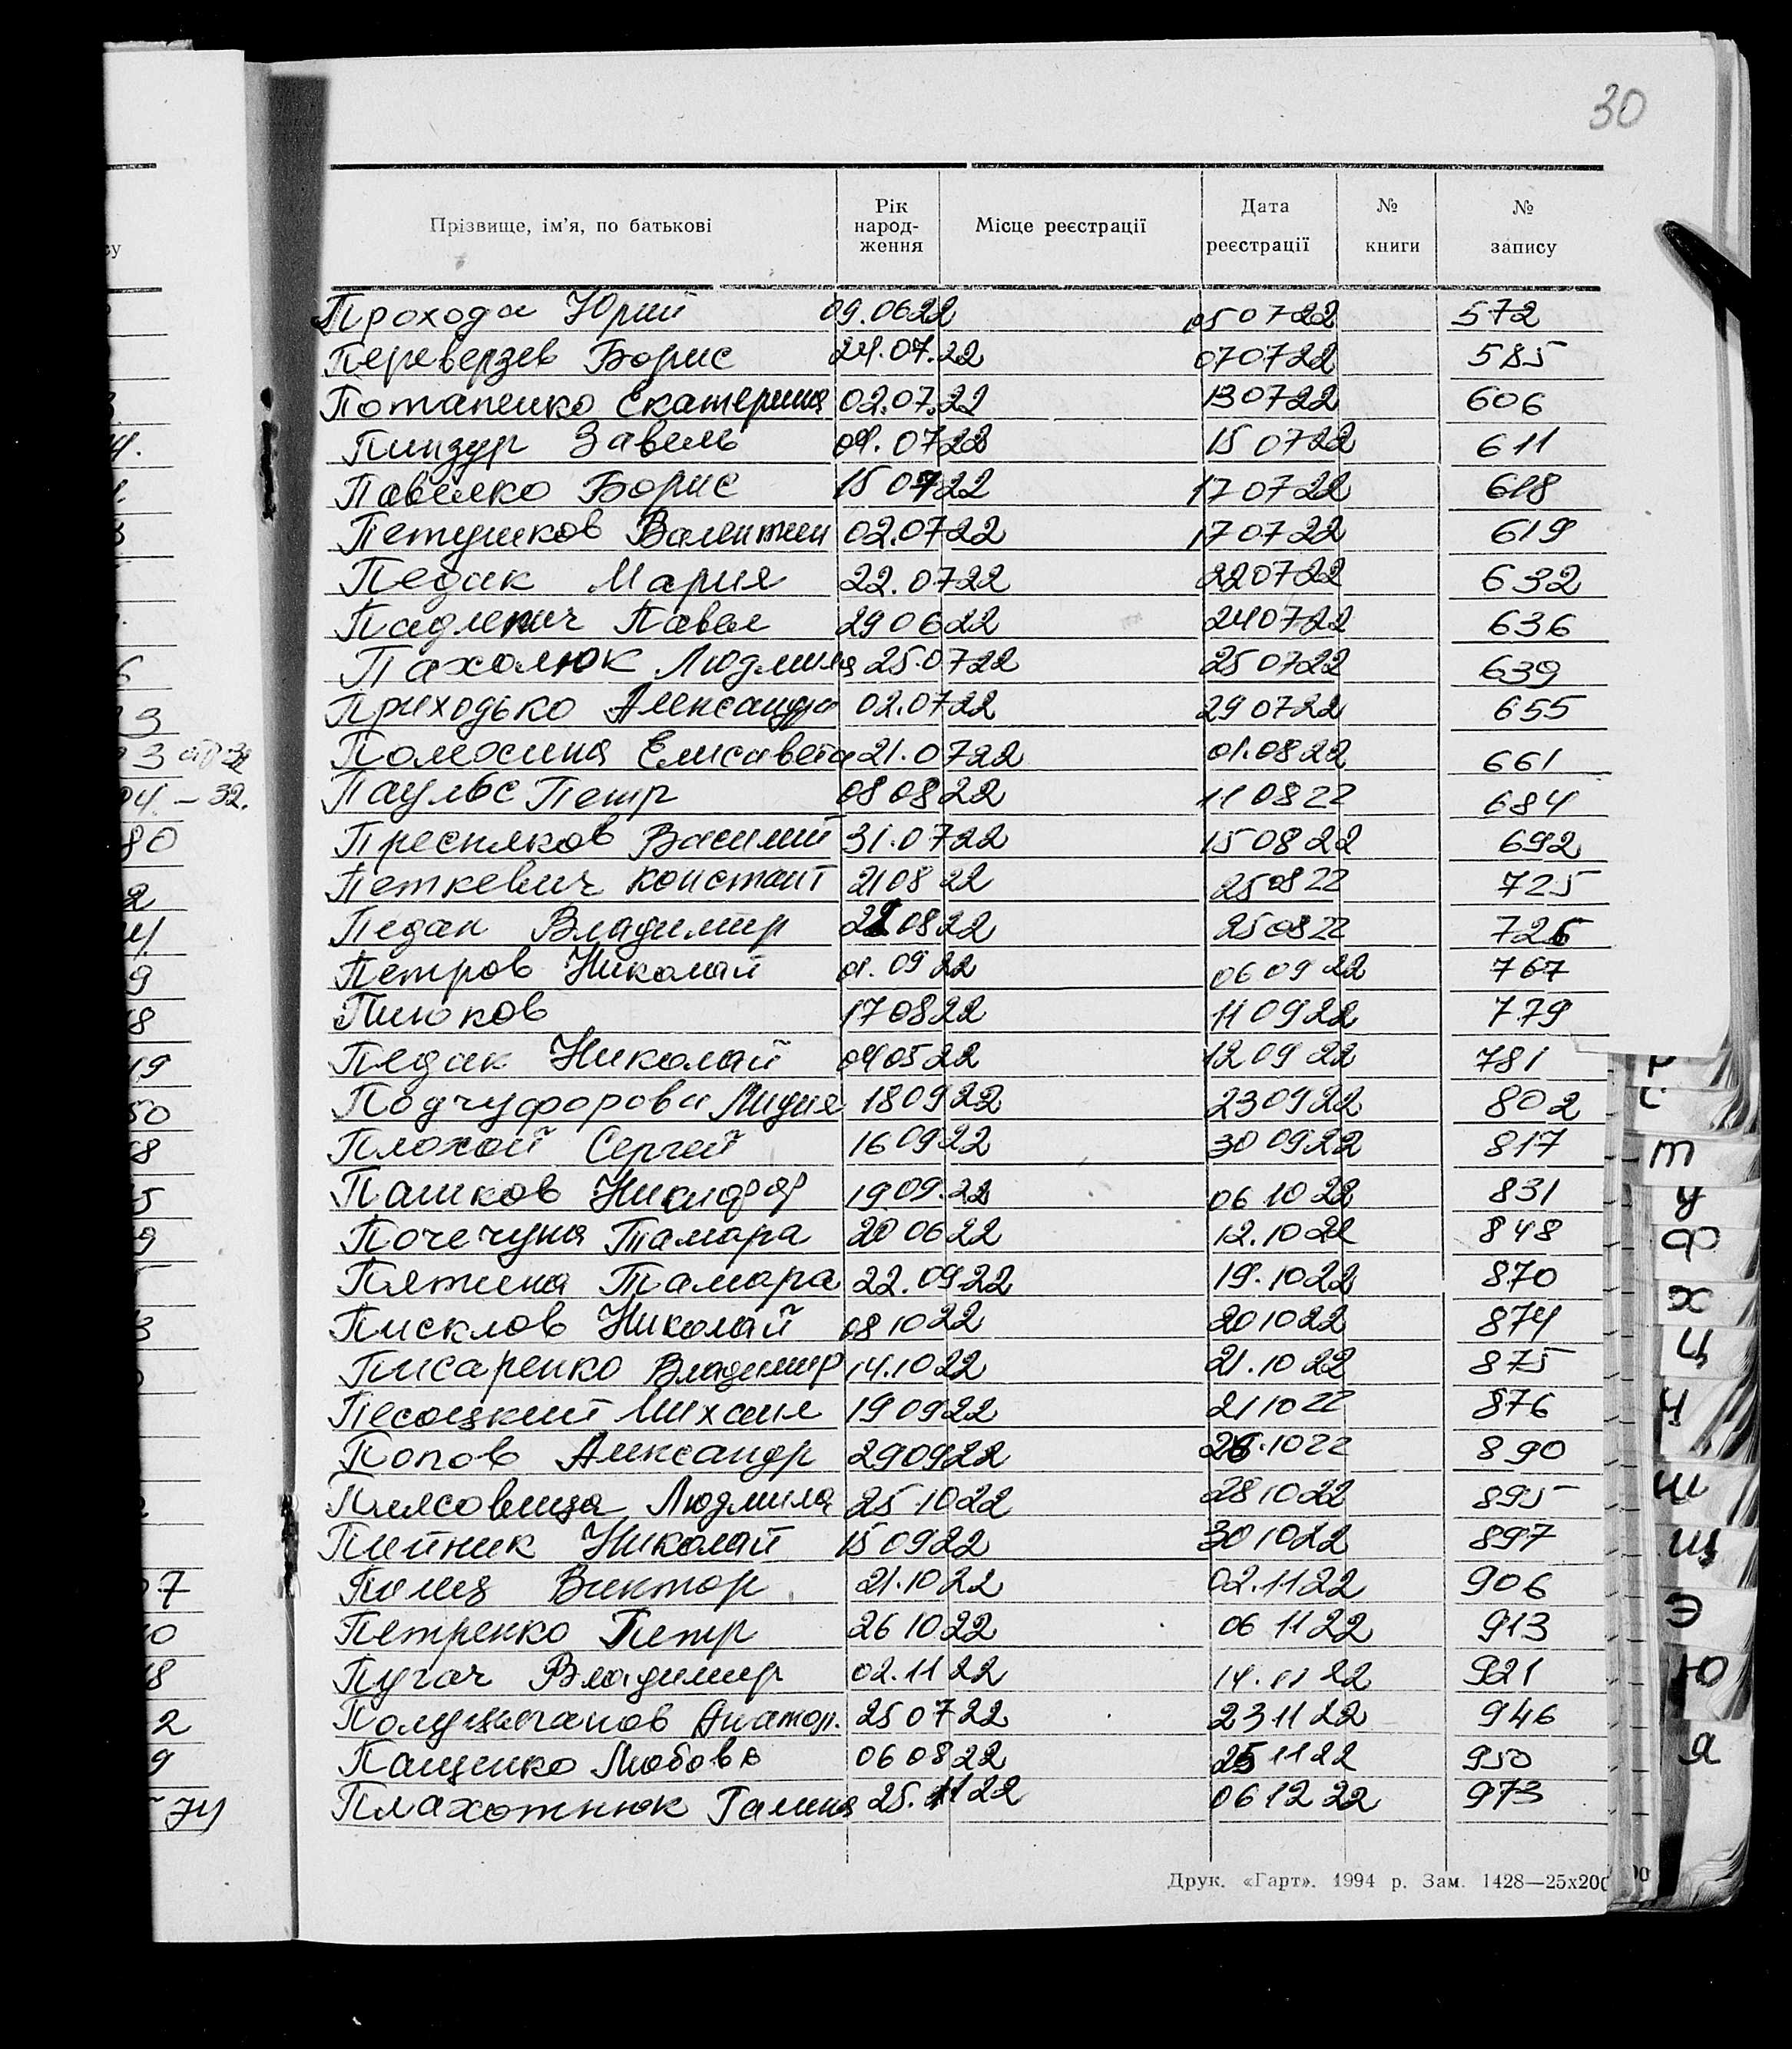 30
Прізвище, ім'я, по батькові Рік народ-ження Місце реєстрації Дата реєстрації № книги № запису
Прохода Юрий 09.0622 050722 572
Переверзев Борис 24.07.22 070722 585
Потапенко Екатерина 02.07.22 130722 606
Пинзур Завель 04.0722 150722 611
Павелко Борис 150722 170722 618
Петушков Валентин 02.0722 170722 619
Педак Мария 22.0722 220722 632
Павел 290622 240722 636
Пахолюк Людмила 25.0722 250722 639
Приходько Александра 02.0722 290722 655
Помосина Елисавета 21.0722 01.0822 661
Паульс Петр 080822 110822 684
Пресняков Василий 31.0722 150822 692
Петкевич Констант 210822 250822 725
Педан Владимир 220822 250822 726
Петров Николай 01.0922 060922 767
Пиюков 170822 110922 779
Педак Николай 040522 120922 781
Подчуфорова Лидия 180922 230922 802
Плохой Сергей 160922 300922 817
Пашков Никифор 1909.22 061022 831
Почечуня Тамара 200622 12.1022 848
Пятина Тамара 22.0922 19.1022 870
Писклов Николай 081022 201022 874
Писаренко Владимир 14.1022 21.1022 875
Песоцкий Михаил 190922 211022 876
Попов Александр 290922 26.1022 890
Плясовица Людмила 25.1022 281022 895
Пийник Николай 150922 301022 897
Виктор 21.1022 02.1122 906
Петренко Петр 261022 061122 913
Пугач Владимир 02.1122 14.1122 921
Полуцыганов Анатол. 250722 231122 946
Пащенко Любовь 060822 251122 950
Плахотнюк Галина 25.1122 061222 973
Друк. «Гарт». 1994 р. Зам. 1428—25х200
т
у
ф
х
ц
ч
ш
щ
э
ю
я